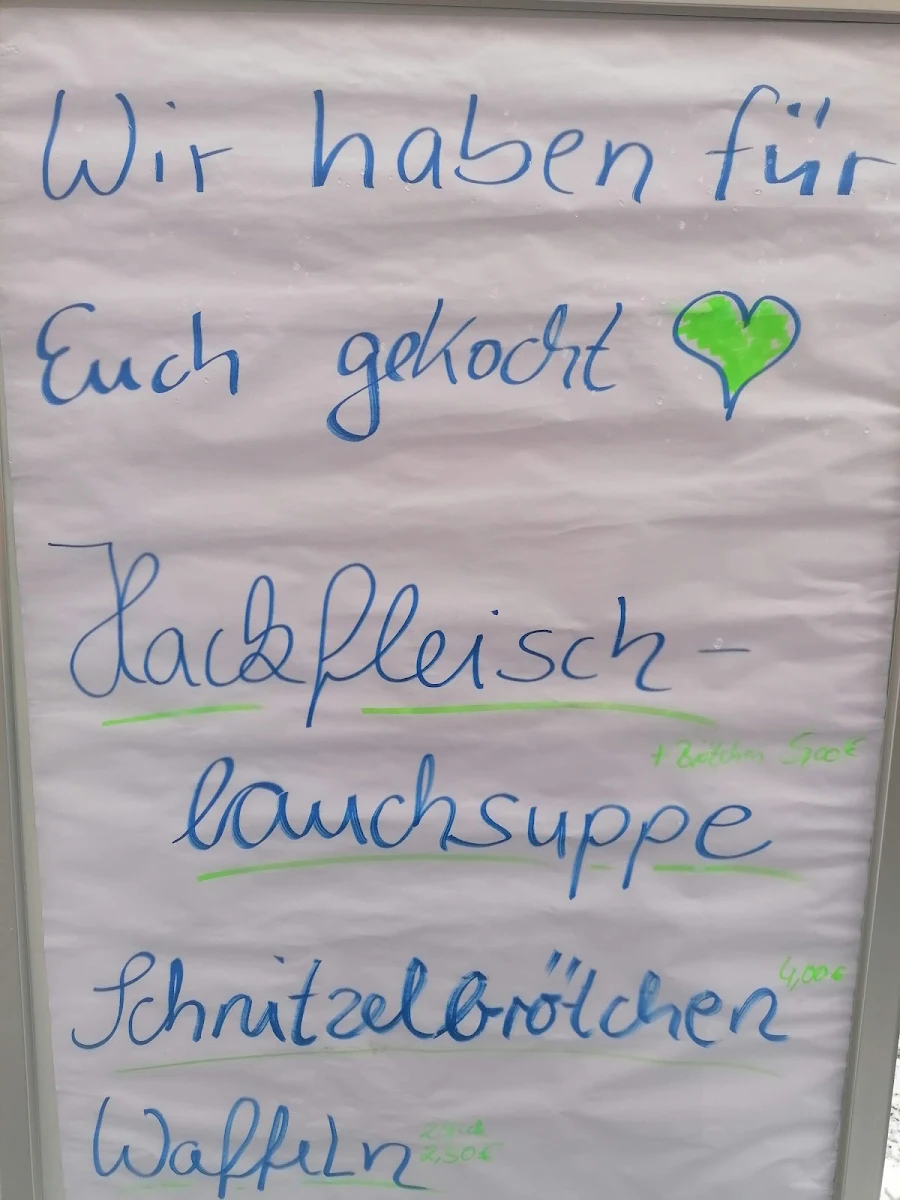 Wir haben für
Euch gekocht
Hackfleisch-
+ Brötchen 5,00€
lauchsuppe
4,00€
Schnitzelbrötchen
Waffeln
2,50€